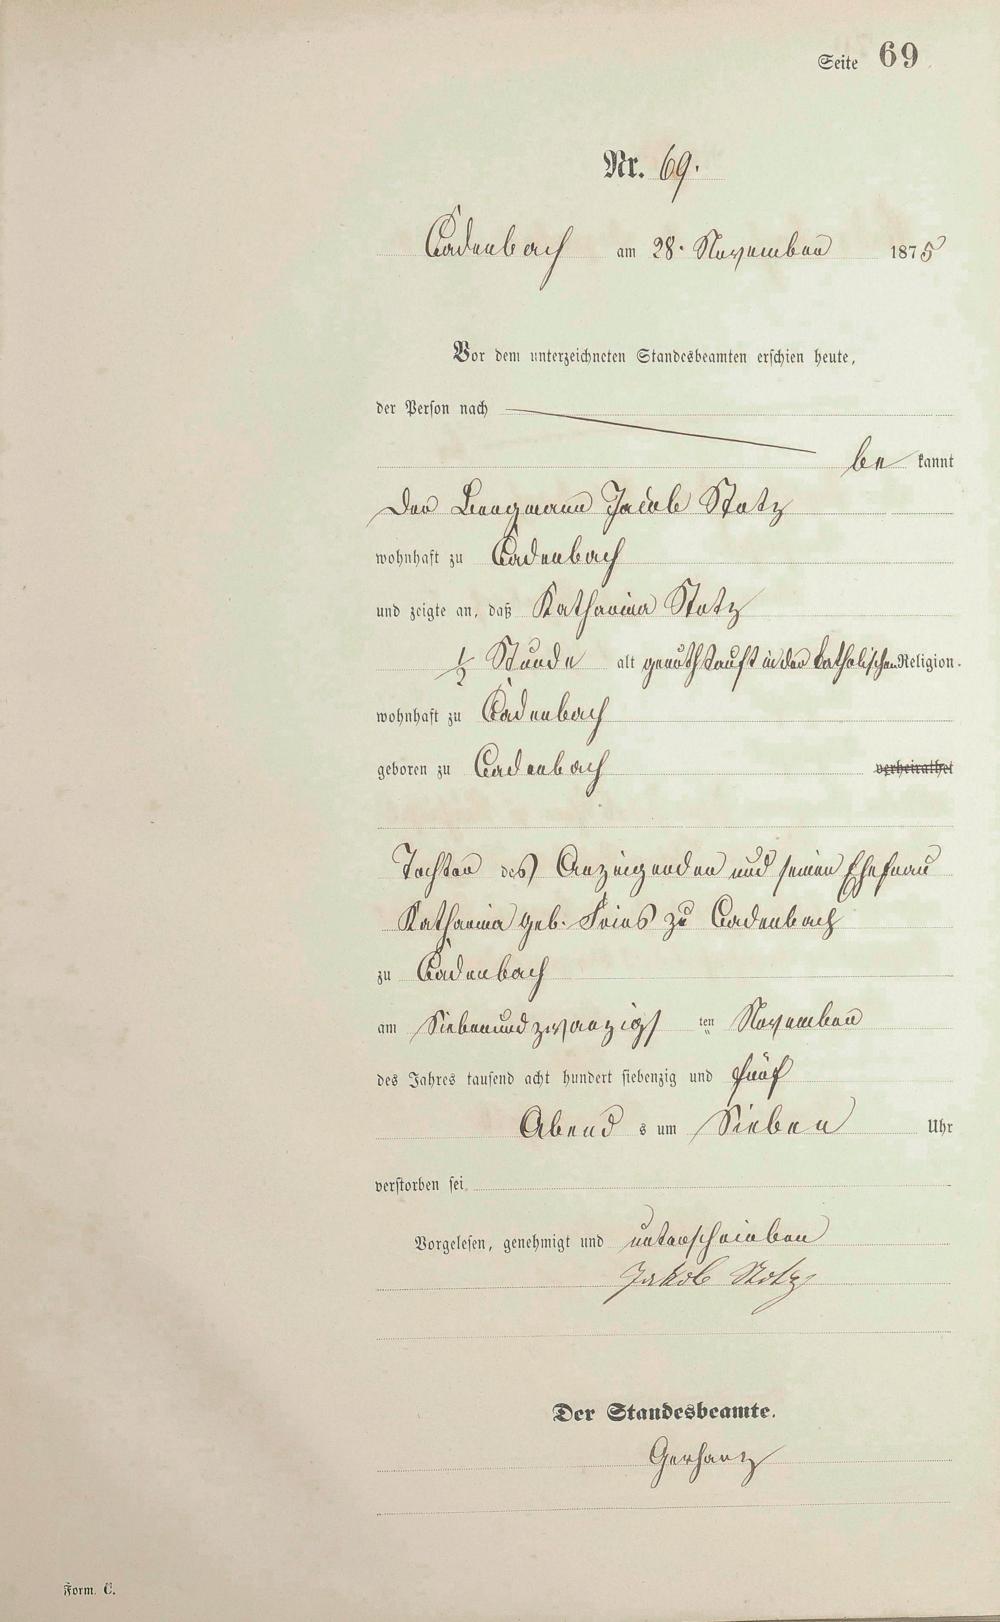 Seite 69
Nr. 69.
Cadenbach am 28. November 1875
Vor dem unterzeichneten Standesbeamten erschien heute,
der Person nach
be kannt
Der Bergmann Jacob Stotz
wohnhaft zu Cadenbach
und zeigte an, daß Katharina Stotz
1/2 Stunde alt genothtauft in der katholischen Religion.
wohnhaft zu Cadenbach
geboren zu Cadenbach verheirathet
Tochter des Anzeigenden und seiner Ehefrau
Katharina geb. Fries zu Cadenbach
zu Cadenbach
am Siebenundzwanzigs ten November
des Jahres tausend acht hundert siebenzig und fünf
Abend s um Sieben Uhr
verstorben sei.
Vorgelesen, genehmigt und unterschrieben
Jakob Stotz
Der Standesbeamte.
Gerharz
Form. C.